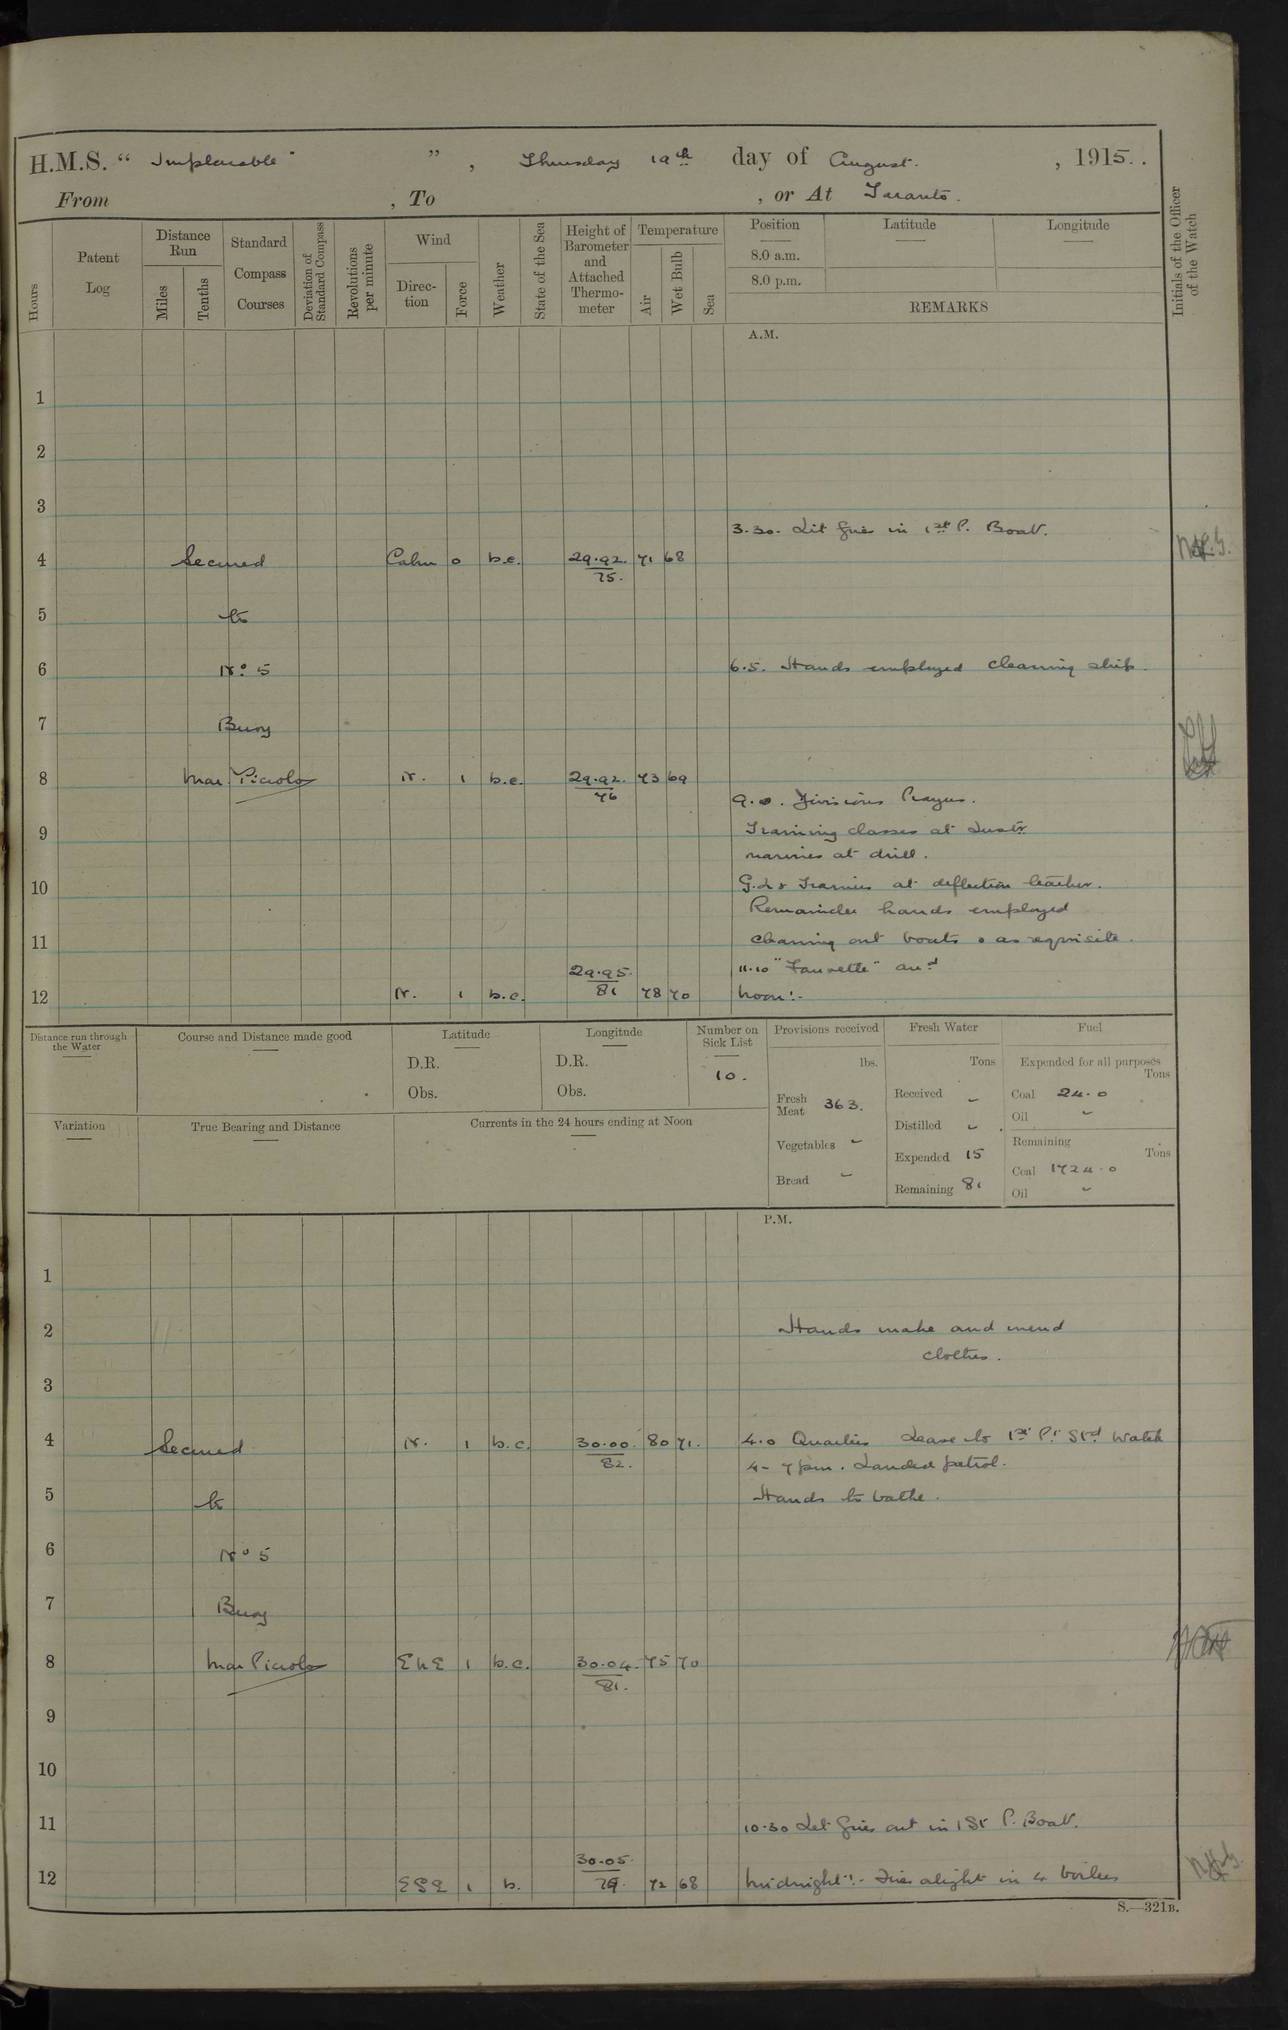 H.M.S. “ Implacable ” , Thursday 19th day of August. , 1915.
From , To , or At Taranto.
Hours
Patent Log
Distance Run
Miles
Tenths
Standard Compass Courses
Deviation of Standard Compass
Revolutions per minute
Wind
Direction
Force
Weather
State of the Sea
Height of Barometer and Attached Thermometer
Temperature
Air
Wet Bulb
Sea
Position
8.0 a.m.
8.0 p.m.
Latitude
Longitude
REMARKS
Initials of the Officer of the Watch
A.M.
1
2
3
3.30. Lit fires in 1st P. Boat.
4 Secured Calm 0 b.c. 29.92. 71 68
75.
5 to
6 No. 5 6.5. Hands employed cleaning ship.
7 Buoy
8 Mar Piccolo N. 1 b.c. 29.92. 73 69
76
9.0. Divisions Prayers.
9 Training classes at Instr.
marines at drill.
10 G.L's Trainers at deflection teacher.
Remainder hands employed
11 cleaning out boats & as requisite.
29.95. 11.10 "Fauvette" arrd
12 N. 1 b.c. 81 78 70 Noon:-
Distance run through the Water
Course and Distance made good
Latitude
D.R.
Obs.
Longitude
D.R.
Obs.
Number on Sick List
10.
Variation
True Bearing and Distance
Currents in the 24 hours ending at Noon
Provisions received
lbs.
Fresh Meat 363.
Vegetables -
Bread -
Fresh Water
Tons
Received -
Distilled -
Expended 15
Remaining 81
Fuel
Expended for all purposes
Tons
Coal 24.0
Oil -
Remaining
Tons
Coal 1724.0
Oil -
P.M.
1
2 Hands make and mend
clothes.
3
4 Secured N. 1 b.c. 30.00. 80 71. 4.0 Quarters Leave to 1st Pt Stbd Watch
82. 4 - 7 pm. Landed patrol.
5 to Hands to bathe.
6 No 5
7 Buoy
8 Mar Piccolo ENE 1 b.c. 30.04. 75 70
81.
9
10
11 10.30 Let fires out in 1st P. Boat.
30.05.
12 ESE 1 b. 79. 72 68 Midnight:- Fires alight in 4 boilers
S.—321B.